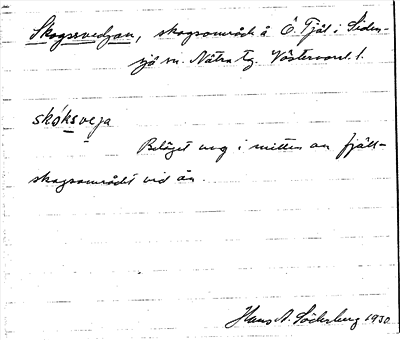 Skogsvedjan, skogsområde å Ö. Fjäl i Siden-
sjö sn. Nätra tg. Västernorrl. l.
skóksveja
Beläget ung i mitten av fjäll-
skogsområdet vid ån.
Hans A. Söderberg 1930